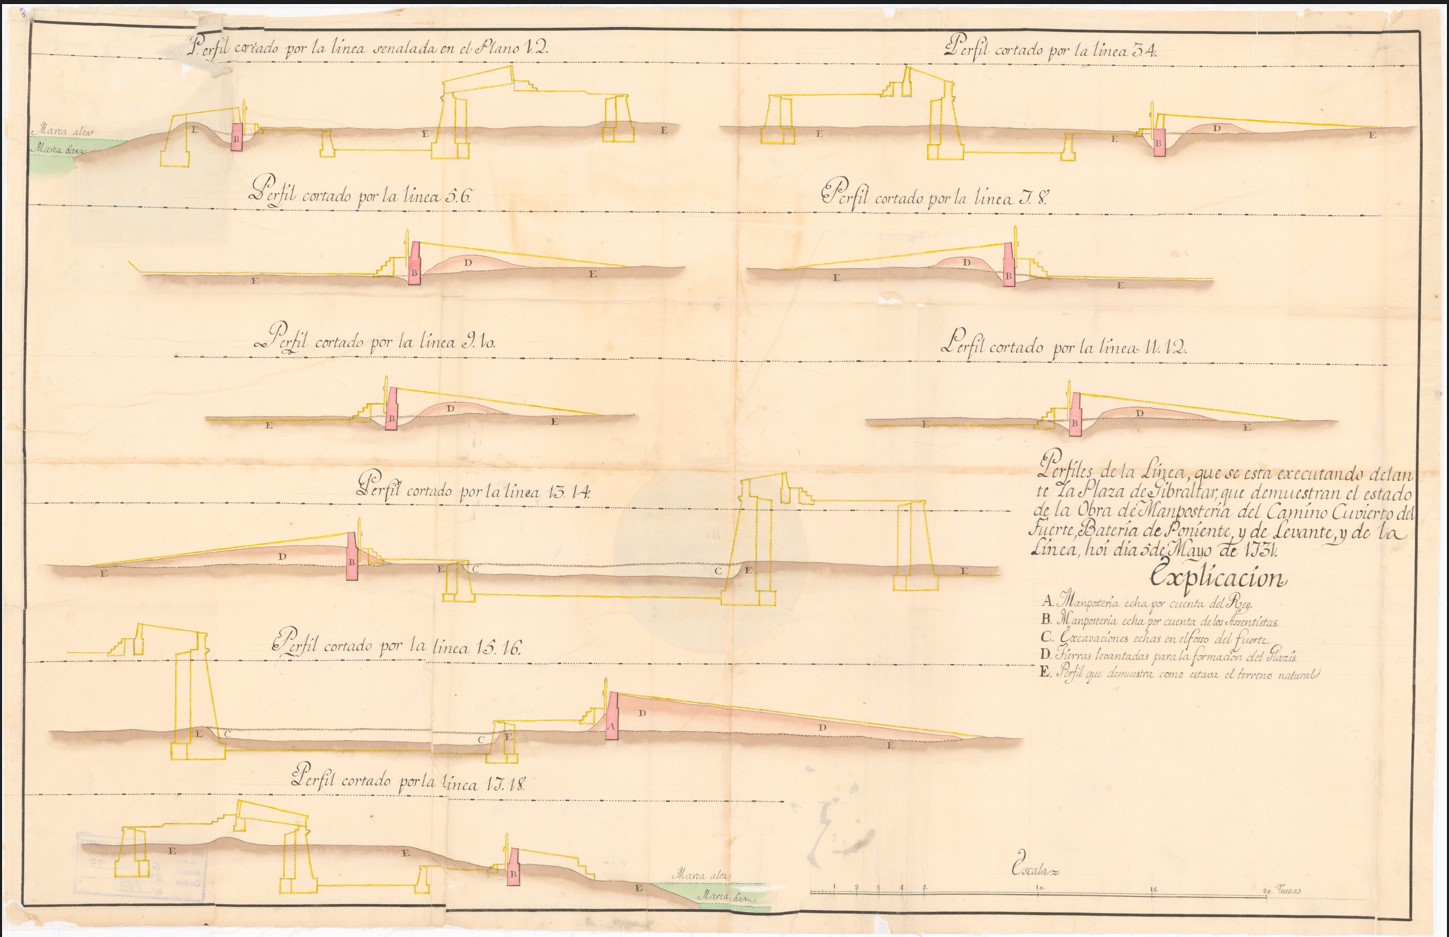 Perfil cortado por la linea senalada en el Plano 1.2.
Perfil cortado por la linea 3.4.
Marea alta
Marea baxa
E
B
E
E
E
E
B
D
E
Perfil cortado por la linea 5.6.
Perfil cortado por la linea 7.8.
E
B
D
E
E
D
B
E
Perfil cortado por la linea 9.10.
Perfil cortado por la linea 11.12.
E
B
D
E
E
B
D
E
Perfil cortado por la linea 13.14.
E
D
B
E
C
C
E
E
Perfiles de la Linea, que se esta executando delan
te la Plaza de Gibraltar, que demuestran el estado
de la Obra de Manposteria del Camino Cuvierto del
Fuerte, Bateria de Poniente, y de Levante, y de la
Linea, hoi dia 5 de Mayo de 1731.
Explicacion
A. Manposteria echa por cuenta del Rey.
B. Manposteria echa por cuenta de los Assentistas.
C. Excavaciones echas en el foso del fuerte.
D. Tierras levantadas para la formacion del Glazis.
E. Perfil que demuestra como estava el terreno natural
Perfil cortado por la linea 15.16.
E
C
C
E
A
D
D
E
Perfil cortado por la linea 17.18.
E
E
B
E
Marea alta
Marea baxa
Escala
1
2
3
4
5
10
15
20 Tuesas